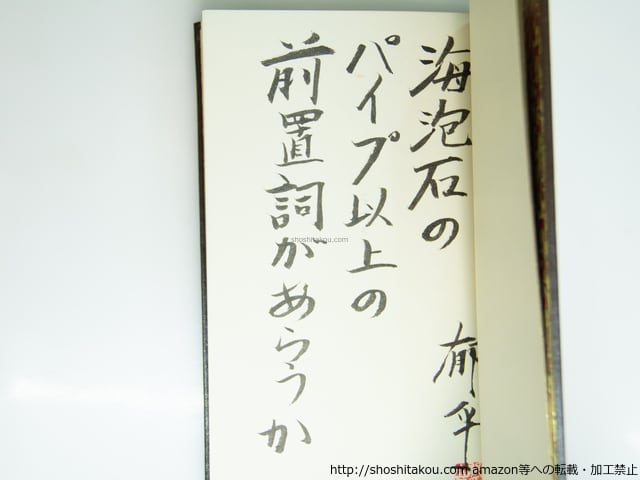 海泡石の
パイプ以上の
前置詞があらうか
郁
shoshitakou.com
http://shoshitakou.com amazon等への転載・加工禁止